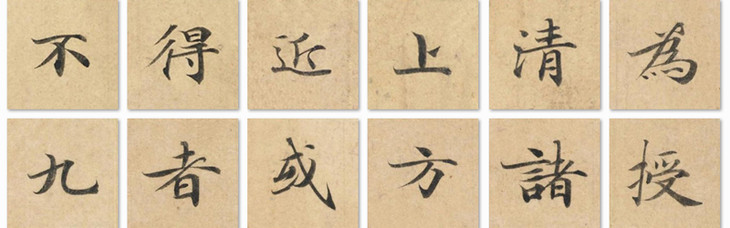 不得近上清為
九者或方諸授